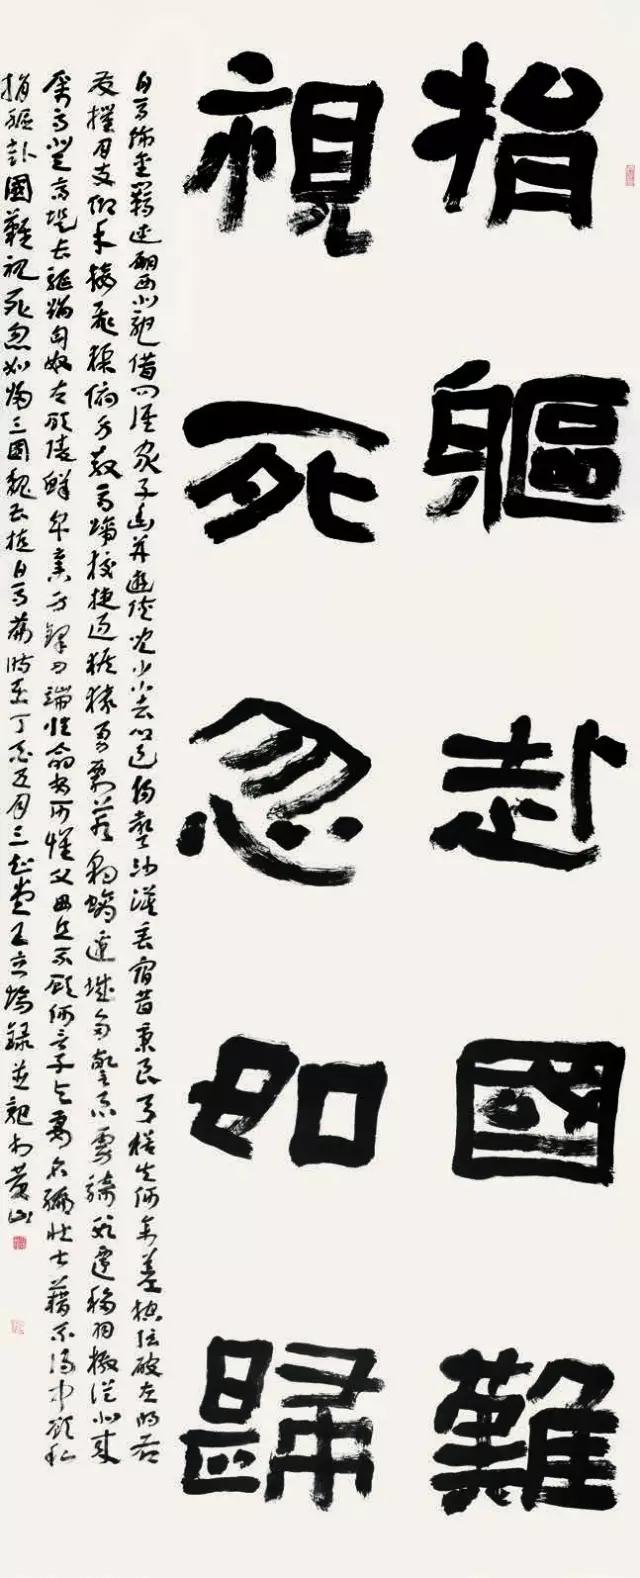 捐軀赴國難
視死忽如歸
白馬飾金羈連翩西北馳借問誰家子幽并遊俠兒少小去鄉邑揚聲沙漠垂宿昔秉良弓楛矢何參差控弦破左的右
發摧月支仰手接飛猱俯身散馬蹄狡捷過猴猿勇剽若豹螭邊城多警急虜騎數遷移羽檄從北來
厲馬登高堤長驅蹈匈奴左顧陵鮮卑棄身鋒刃端性命安可懷父母且不顧何言子與妻名編壯士籍不得中顧私
捐軀赴國難視死忽如歸三國魏曹植白馬篇時在丁亥五月三堂王立錄並於黃山